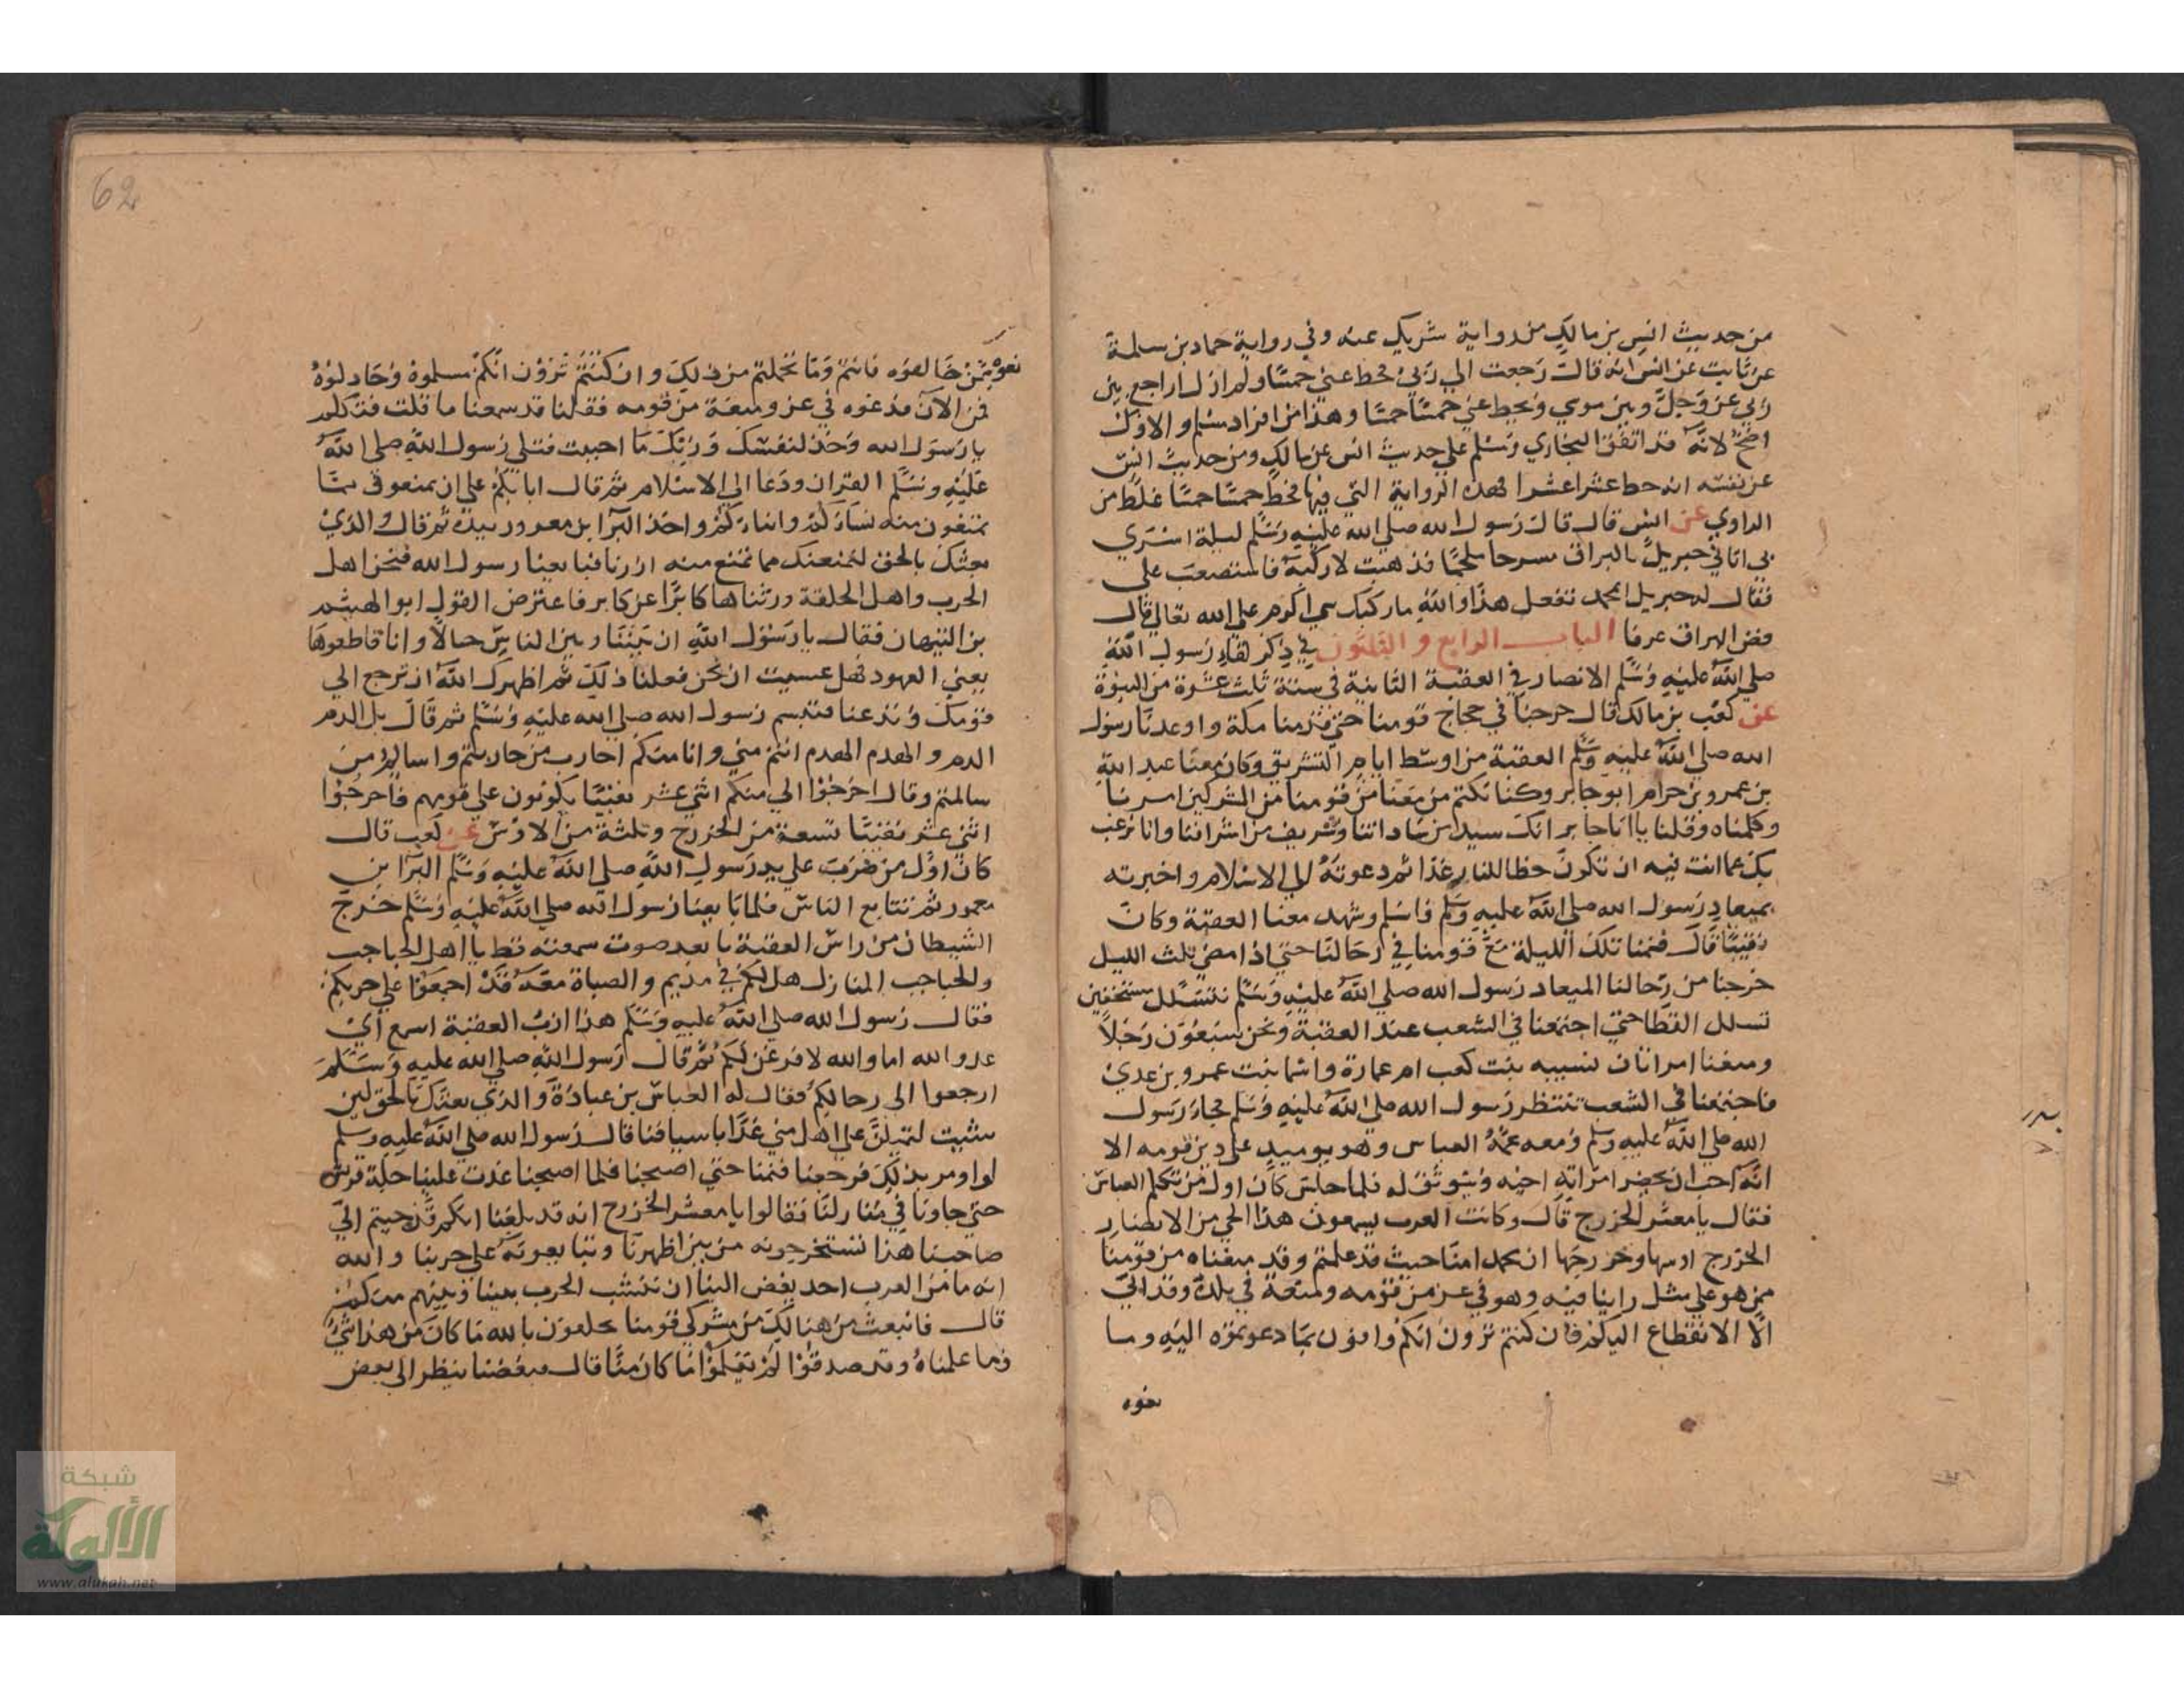 من حديث انس بن مالك من رواية شريك عنه وفي رواية حماد بن سلمة
عن ثابت عن انس انه قال رجعت الي ربي فحط عني خمسا ولم ازل اراجع بين
ربي عز وجل وبين موسي ويحط عني خمسا خمسا وهذا من افراد مسلم والاول
اصح لانه قد اتفق البخاري ومسلم علي حديث انس عن مالك ومن حديث انس
عن نفسه انه حط عشرا عشرا فهذه الرواية التي فيها فحط خمسا خمسا غلط من
الراوي عن انس قال قال رسول الله صلي الله عليه وسلم ليلة اسري
بي اتاني جبريل بالبراق مسرجا ملجما فذهبت لاركبه فاستصعب علي
فقال له جبريل ابمحمد تفعل هذا والله ما ركبك اكرم علي الله تعالي قال
البراق عرقا الباب الرابع والثلثون في ذكر لقاء رسول الله
صلي الله عليه وسلم الانصار في العقبة الثانية في سنة ثلث عشرة من النبوة
عن كعب بن مالك قال خرجنا في حجاج قومنا حتي قدمنا مكة واوعدنا رسول
الله صلي الله عليه وسلم العقبة من اوسط ايام التشريق وكان معنا عبد الله
بن عمرو بن حرام ابو جابر وكنا نكتم من معنا من قومنا من المشركين امرنا
وكلمناه وقلنا يا ابا جابر انك سيد من ساداتنا وشريف من اشرافنا وانا نرغب
بك عما انت فيه ان تكون حطبا للنار غدا ثم دعوته الي الاسلام واخبرته
بميعاد رسول الله صلي الله عليه وسلم فاسلم وشهد معنا العقبة وكان
نقيبا قال فنمنا تلك الليلة مع قومنا في رحالنا حتي اذا مضي ثلث الليل
خرجنا من رحالنا الميعاد رسول الله صلي الله عليه وسلم نتسلل مستخفين
تسلل القطا حتي اجتمعنا في الشعب عند العقبة ونحن سبعون رجلا
ومعنا امراتان نسيبه بنت كعب ام عمارة واسما بنت عمرو بن عدي
فاجتمعنا في الشعب ننتظر رسول الله صلي الله عليه وسلم فجاء رسول
الله صلي الله عليه وسلم ومعه عمه العباس وهو يوميد علي دين قومه الا
انه احب ان يحضر امر ابن اخيه ويتوثق له فلما جلس كان اول من تكلم العباس
فقال يا معشر الخزرج قال وكانت العرب يسمون هذا الحي من الانصار
الخزرج اوسها وخزرجها ان محمد امنا حيث قد علمتم وقد منعناه من قومنا
ممن هو علي مثل راينا فيه وهو في عز من قومه ومنعة في بلده وقد ابي
الا الانقطاع اليكم فان كنتم ترون انكم وافون بما دعوتموه اليه وما
نعوه
62
ممن خالفوه فانتم وما تحملتم من ذلك وان كنتم ترون انكم مسلموه وخاذلوه
فمن الآن فدعوه في عز ومنعة من قومه فقلنا قد سمعنا ما قلت فتكلم
يا رسول الله وخذ لنفسك وربك ما احببت فتلي رسول الله صلي الله
عليه وسلم القران ودعا الي الاسلام ثم قال ابايعكم علي ان تمنعوني مما
تمنعون منه نساءكم وابناءكم واخذ البرا بن معرور بيده ثم قال والذي
بعثك بالحق لنمنعنك مما نمنع منه ازرنا فبايعنا رسول الله فنحن اهل
الحرب واهل الحلقة ورثناها كابرا عن كابر فاعترض القول ابو الهيثم
بن التيهان فقال يا رسول الله ان بيننا وبين الناس حبالا وانا قاطعوها
يعني العهود فهل عسيت ان نحن فعلنا ذلك ثم اظهرك الله ان ترجع الي
قومك وتدعنا فتبسم رسول الله صلي الله عليه وسلم ثم قال بل الدم
الدم والهدم الهدم انتم مني وانا منكم احارب من حاربتم واسالم من
سالمتم وقال اخرجوا الي منكم اثني عشر نقيبا يكونون علي قومهم فاخرجوا
اثني عشر نقيبا تسعة من الخزرج وثلثة من الاوس عن كعب قال
كان اول من ضرب علي يد رسول الله صلي الله عليه وسلم البرا بن
معرور ثم تتابع الناس فلما بايعنا رسول الله صلي الله عليه وسلم خرج
الشيطان من راس العقبة بابعد صوت سمعته قط يا اهل الجباجب
والجباجب المنازل هل لكم في مذمم والصباة معه قد اجمعوا علي حربكم
فقال رسول الله صلي الله عليه وسلم هذا ازب العقبة اسمع اي
عدو الله اما والله لافرغن لكم ثم قال رسول الله صلي الله عليه وسلم
ارجعوا الي رحالكم فقال له العباس بن عبادة والذي بعثك بالحق لين
شيت لنميلن علي اهل مني غدا باسيافنا قال رسول الله صلي الله عليه وسلم
لم اومر بذلك فرجعنا فنمنا حتي اصبحنا فلما اصبحنا غدت علينا جلة قريش
حتي جاونا في منازلنا فقالوا يا معشر الخزرج انه قد بلغنا انكم قد جيتم الي
صاحبنا هذا تستخرجونه من بين اظهرنا وتبايعونه علي حربنا والله
انه ما من العرب احد ابغض الينا ان تنشب الحرب بيننا وبينهم منكم
قال فانبعث من هنالك من مشركي قومنا يحلفون بالله ما كان من هذا شي
وما علمناه وقد صدقوا لم يعلموا ما كان منا قال فبعضنا ينظر الي بعض
شبكة
الألوكة
www.alukah.net